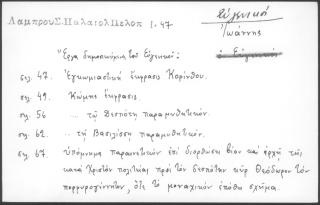 Λάμπρου Σ. Παλαιολ Πελοπ I. 47
Εὐγενικός
Ἰωάννης
ὁ Εὐγενικός
Ἔργα δημοσιευόμενα τοῦ Εὐγενικοῦ:
σελ. 47. Ἐγκωμιαστική ἔκφρασις Κορίνθου.
σελ. 49. Κώμης ἔκφρασις
σελ. 56 ... τῷ Δεσπότῃ παραμυθητικόν.
σελ. 62. .. τῇ Βασιλίσσῃ παραμυθητικόν.
σελ. 67. ὑπόμνημα παραινετικόν ἐπί διορθώσει βίου καί ἀρχῇ τῆς
κατά Χριστόν πολιτείας πρός τόν δεσπότην κύρ Θεόδωρον τόν
πορφυρογέννητον, ὅτε τό μοναχικόν ἐπόθει σχῆμα.